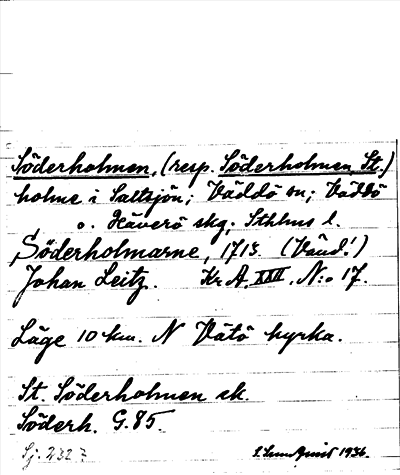 Söderholmen, (resp. Söderholmen, St.)
holme i Saltsjön; Väddö sn; Väddö
o. Häverö skg; Sthlms l.
Söderholmarne, 1713. (Vänd!)
Johan Leitz. Kr. A. XXII. N:o 17.
Läge 10 km. N Vätö kyrka.
St. Söderholmen ek.
Söderh. G. 85.
Sj. 232
1936.